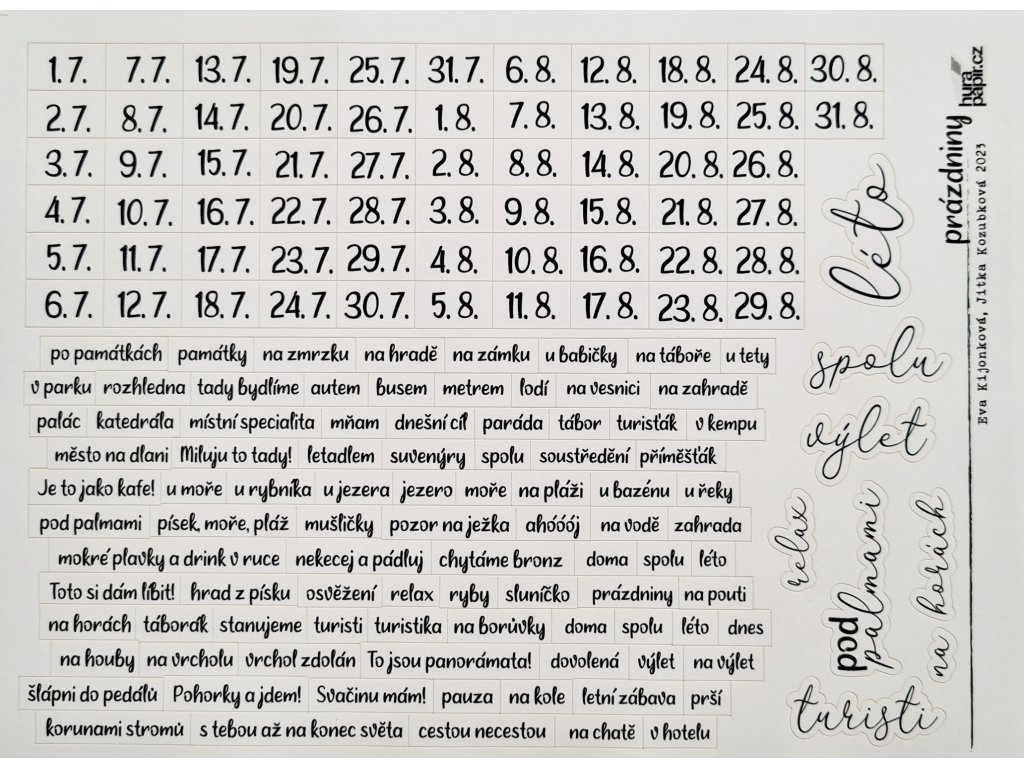 1.7. 7.7. 13.7. 19.7. 25.7. 31.7. 6.8. 12.8. 18.8. 24.8. 30.8.
2.7. 8.7. 14.7. 20.7. 26.7. 1.8. 7.8. 13.8. 19.8. 25.8. 31.8.
3.7. 9.7. 15.7. 21.7. 27.7. 2.8. 8.8. 14.8. 20.8. 26.8.
4.7. 10.7. 16.7. 22.7. 28.7. 3.8. 9.8. 15.8. 21.8. 27.8.
5.7. 11.7. 17.7. 23.7. 29.7. 4.8. 10.8. 16.8. 22.8. 28.8.
6.7. 12.7. 18.7. 24.7. 30.7. 5.8. 11.8. 17.8. 23.8. 29.8.
po památkách památky na zmrzku na hradě na zámku u babičky na táboře u tety
v parku rozhledna tady bydlíme autem busem metrem lodí na vesnici na zahradě
palác katedrála místní specialita mňam dnešní cíl paráda tábor turisťák v kempu
město na dlani Miluju to tady! letadlem suvenýry spolu soustředění příměšťák
Je to jako kafe! u moře u rybníka u jezera jezero moře na pláži u bazénu u řeky
pod palmami písek, moře, pláž mušličky pozor na ježka ahóóój na vodě zahrada
mokré plavky a drink v ruce nekecej a pádluj chytáme bronz doma spolu léto
Toto si dám líbit! hrad z písku osvěžení relax ryby sluníčko prázdniny na pouti
na horách táborák stanujeme turisti turistika na borůvky doma spolu léto dnes
na houby na vrcholu vrchol zdolán To jsou panorámata! dovolená výlet na výlet
šlápni do pedálů Pohorky a jdem! Svačinu mám! pauza na kole letní zábava prší
korunami stromů s tebou až na konec světa cestou necestou na chatě v hotelu
léto
spolu
výlet
relax
pod
palmami
na horách
turisti
prázdniny
hurá
papír.cz
Eva Kijonková, Jitka Kozubková 2023